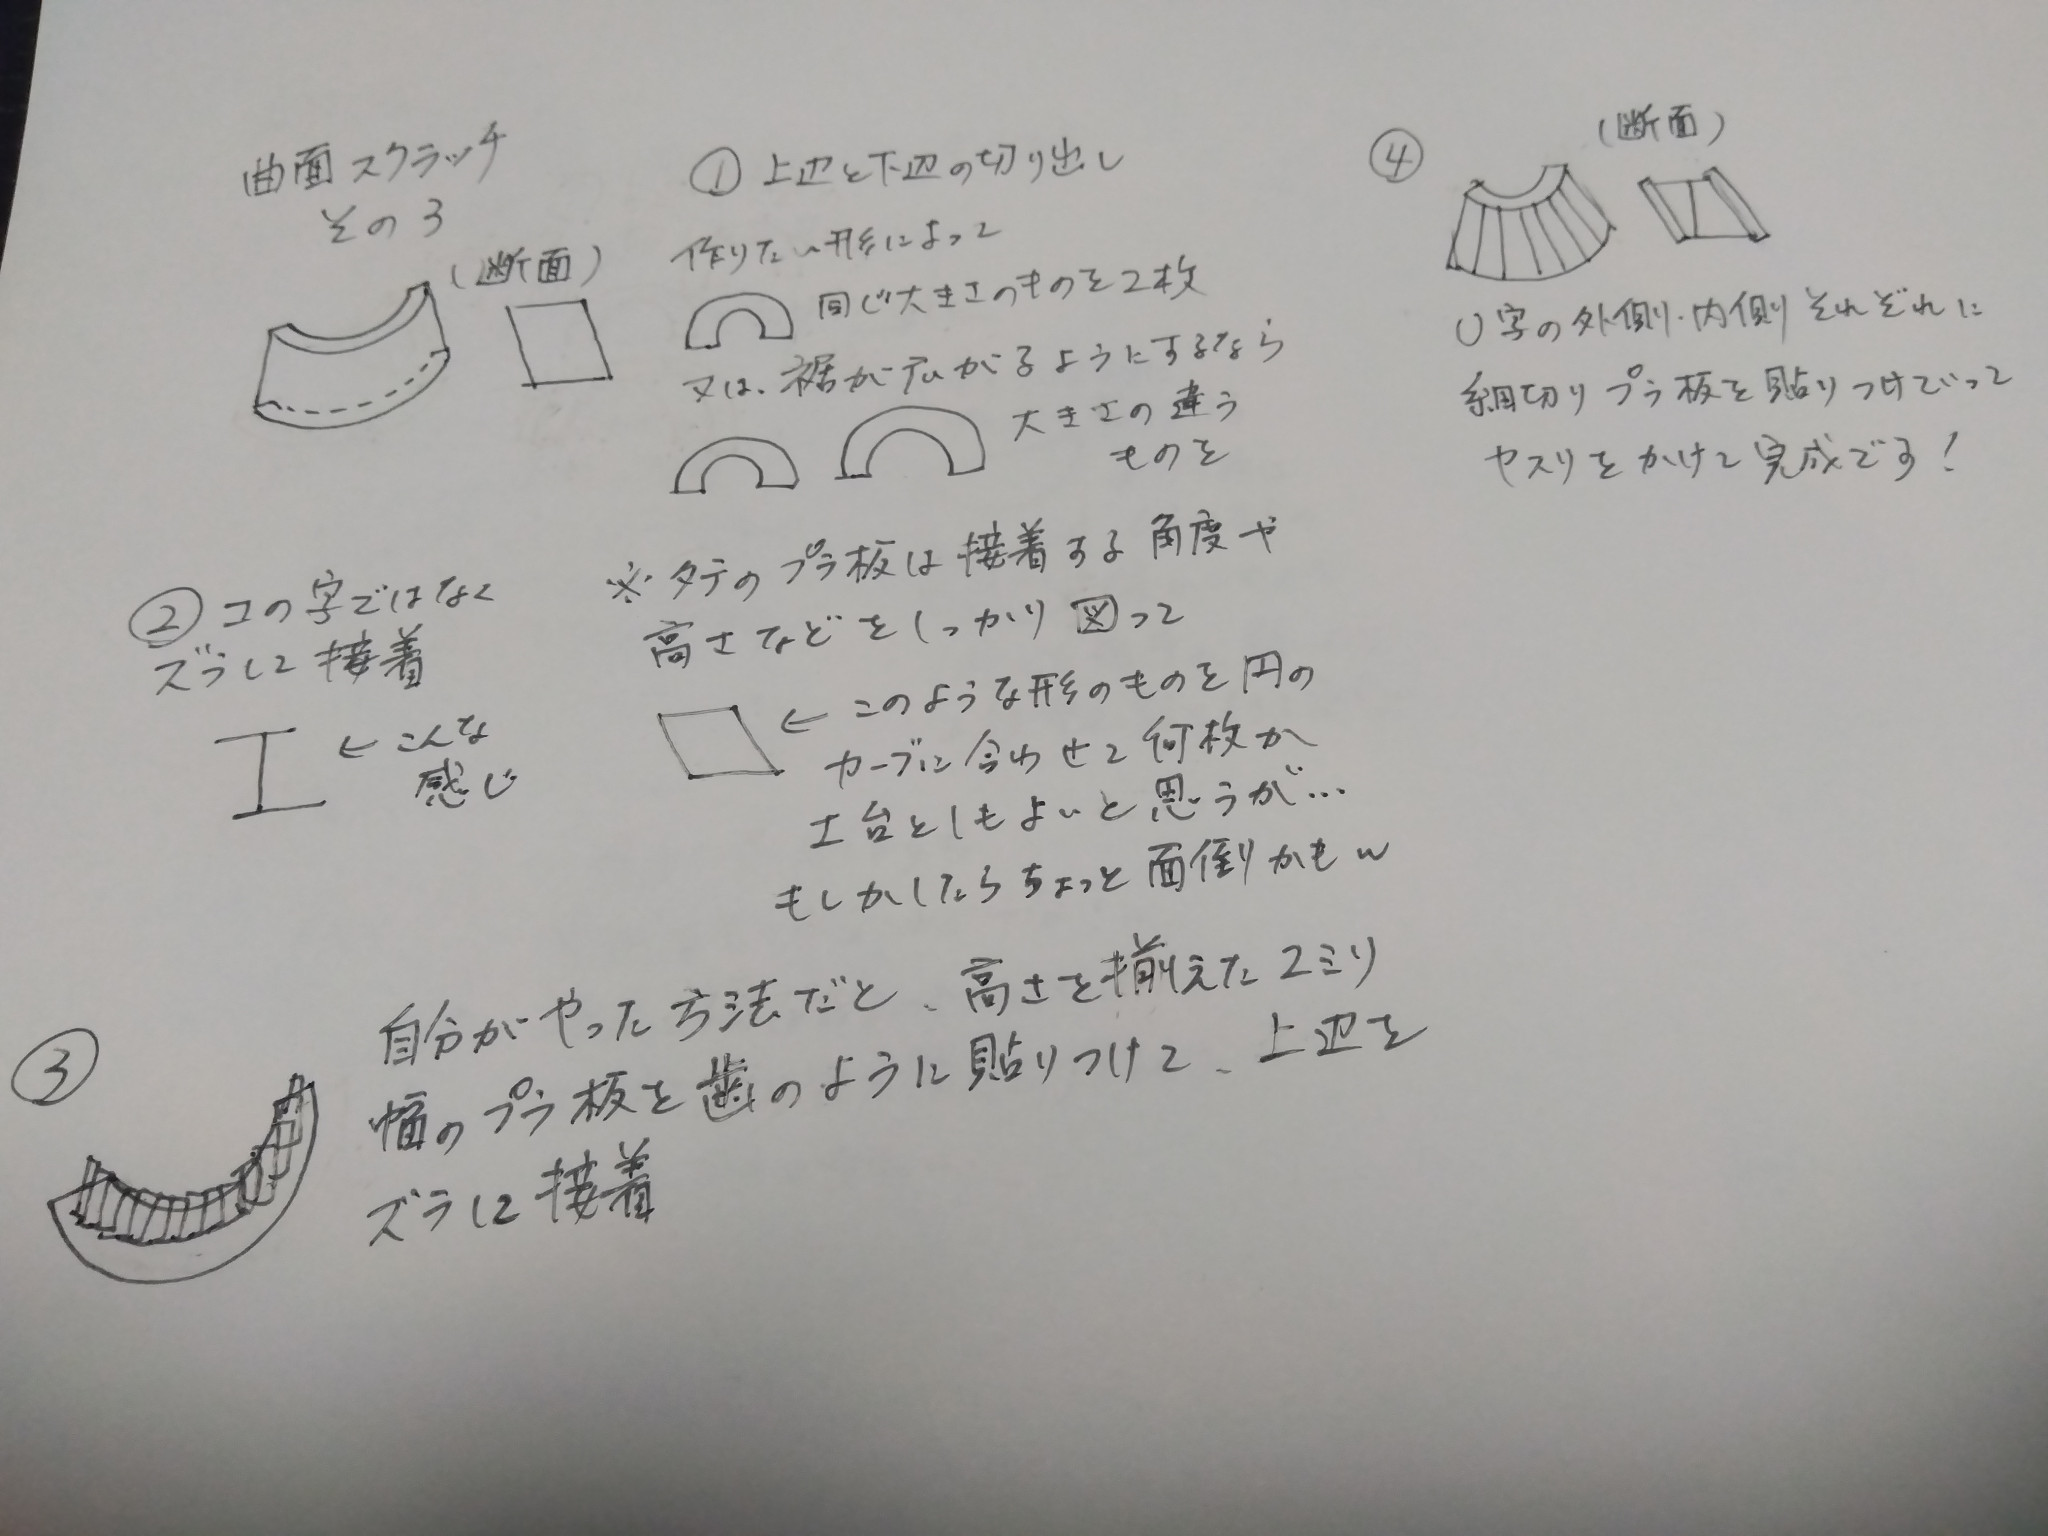 曲面スクラッチ
その3
(断面)
① 上辺と下辺の切り出し
作りたい形によって
同じ大きさのものを2枚
又は、裾が広がるようにするなら
大きさの違う
ものを
② コの字ではなく
ズラして接着
←こんな
感じ
※タテのプラ板は接着する角度や
高さなどをしっかり図って
←このような形のものを円の
カーブに合わせて何枚か
土台としもよいと思うが…
もしかしたらちょっと面倒かもw
③
自分がやった方法だと、高さを揃えた2ミリ
幅のプラ板を歯のように貼りつけて、上辺を
ズラして接着
④
(断面)
U字の外側・内側それぞれに
細切りプラ板を貼りつけていって
ヤスリをかけて完成です!